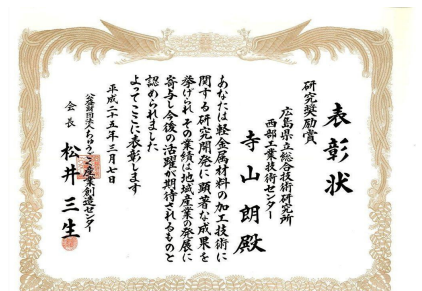 表彰状
研究奨励賞
広島県立総合技術研究所
西部工業技術センター
寺山朗殿
あなたは軽金属材料の加工技術に
関する研究開発に顕著な成果を
挙げられその業績は地域産業の発展に
寄与し今後の活躍が期待されるものと
認められました
よってここに表彰します
平成二十五年三月七日
公益財団法人ちゅうごく産業創造センター
会長 松井三生